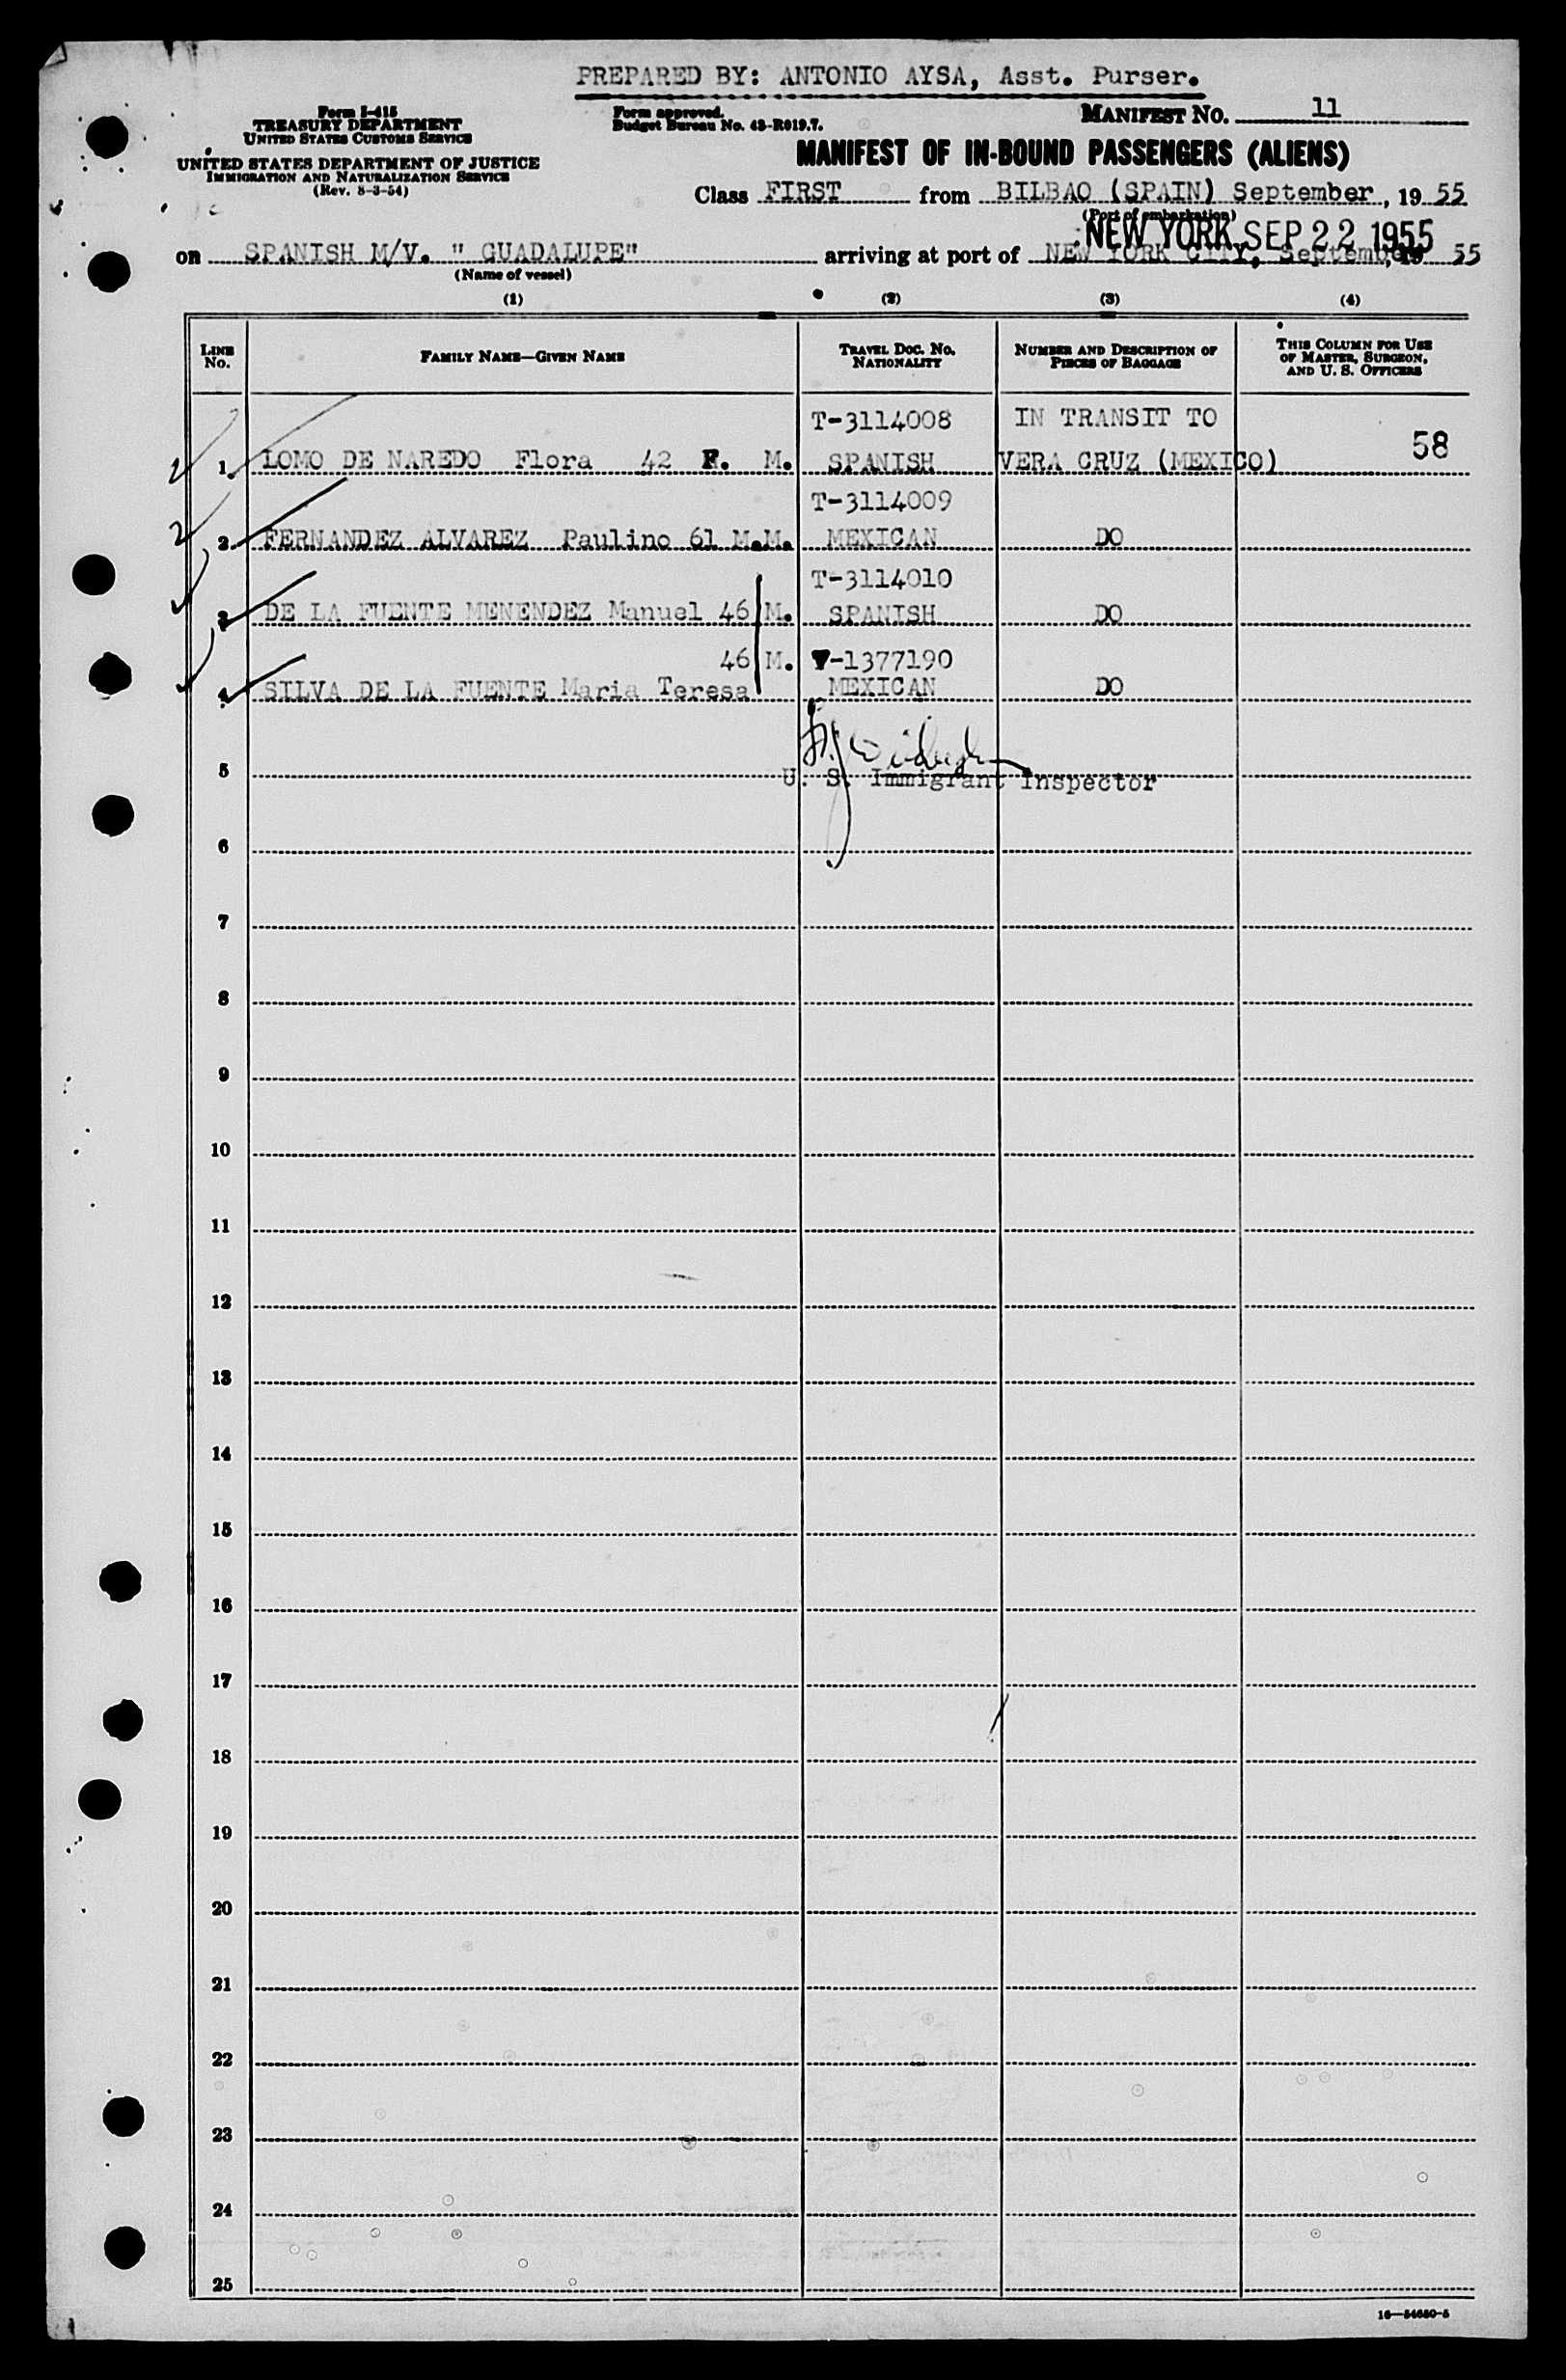 PREPARED BY: ANTONIO AYSA, Asst. Purser.
Form I-415
TREASURY DEPARTMENT
UNITED STATES CUSTOMS SERVICE
Form approved.
Budget Bureau No. 43-R019.7.
MANIFEST NO. 11
UNITED STATES DEPARTMENT OF JUSTICE
IMMIGRATION AND NATURALIZATION SERVICE
(Rev. 8-3-54)
MANIFEST OF IN-BOUND PASSENGERS (ALIENS)
Class FIRST from BILBAO (SPAIN) September, 19 55
(Port of embarkation)
NEW YORK SEP 22 1955
on SPANISH M/V. " GUADALUPE" arriving at port of NEW YORK CITY, September 19 55
(Name of vessel)
(1) (2) (3) (4)
LINE NO.
FAMILY NAME—GIVEN NAME
TRAVEL DOC. NO.
NATIONALITY
NUMBER AND DESCRIPTION OF
PIECES OF BAGGAGE
THIS COLUMN FOR USE
OF MASTER, SURGEON,
AND U. S. OFFICERS
T-3114008 IN TRANSIT TO
1 LOMO DE NAREDO Flora 42 F. M. SPANISH VERA CRUZ (MEXICO) 58
T-3114009
2 FERNANDEZ ALVAREZ Paulino 61 M.M. MEXICAN DO
T-3114010
3 DE LA FUENTE MENENDEZ Manuel 46 M. SPANISH DO
46 M. V-1377190
4 SILVA DE LA FUENTE Maria Teresa MEXICAN DO
5
U. S. Immigrant Inspector
6
7
8
9
10
11
12
13
14
15
16
17
18
19
20
21
22
23
24
25
16—54650-5